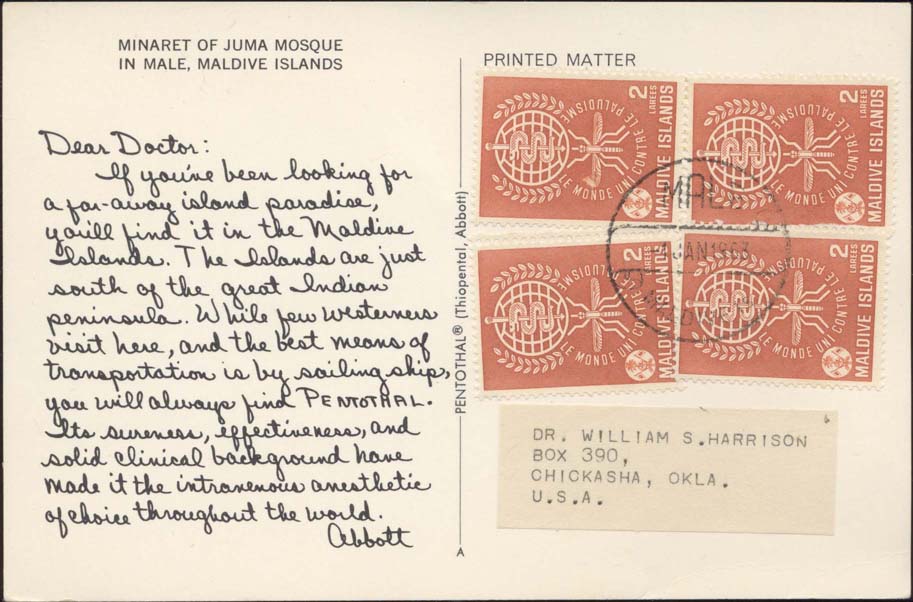 MINARET OF JUMA MOSQUE
IN MALE, MALDIVE ISLANDS
Dear Doctor:
If you've been looking for
a far-away island paradise,
you'll find it in the Maldive
Islands. The Islands are just
south of the great Indian
peninsula. While few westerners
visit here, and the best means of
transportation is by sailing ship,
you will always find PENTOTHAL.
Its sureness, effectiveness, and
solid clinical background have
made it the intravenous anesthetic
of choice throughout the world.
Abbott
PENTOTHAL® (Thiopental, Abbott)
A
PRINTED MATTER
2 LAREES
LE MONDE UNI CONTRE LE PALUDISME
MALDIVE ISLANDS
2 LAREES
LE MONDE UNI CONTRE LE PALUDISME
MALDIVE ISLANDS
2 LAREES
LE MONDE UNI CONTRE LE PALUDISME
MALDIVE ISLANDS
2 LAREES
LE MONDE UNI CONTRE LE PALUDISME
MALDIVE ISLANDS
JAN 1963
DR. WILLIAM S.HARRISON
BOX 390,
CHICKASHA, OKLA.
U.S.A.